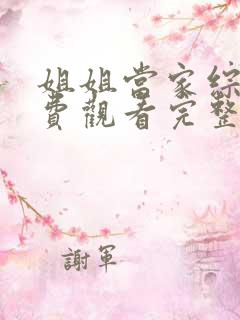 姐姐當家綜
費觀看完整
謝軍